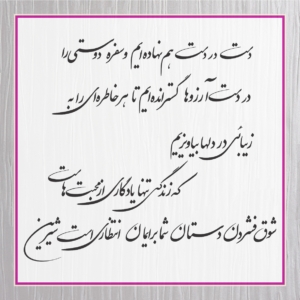 دست در دست هم نهاده ایم و سفره دوستی را
در دست آرزوها گسترانده ایم تا هر خاطره ای را به
زیبائی در دلها بیاویزیم
که زندگی تنها یادگاری از محبت هاست
شوق فشردن دستان شما برایمان انتظاری است شیرین